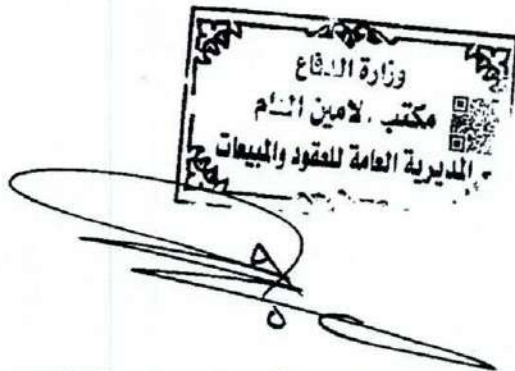 وزارة الدفاع
مكتب . لامين العام
المديرية العامة للعقود والمبيعات